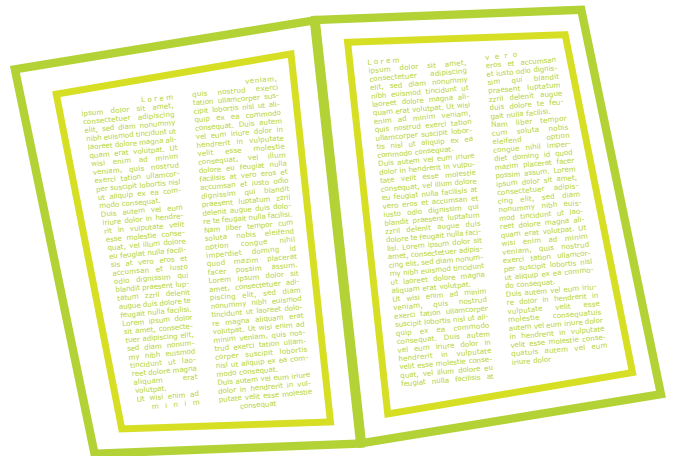 Lorem
ipsum dolor sit amet,
consectetuer adipiscing
elit, sed diam nonummy
nibh euismod tincidunt ut
laoreet dolore magna ali-
quam erat volutpat. Ut
wisi enim ad minim
veniam, quis nostrud
exerci tation ullamcor-
per suscipit lobortis nisl
ut aliquip ex ea com-
modo consequat.
Duis autem vel eum
iriure dolor in hendre-
rit in vulputate velit
esse molestie conse-
quat, vel illum dolore
eu feugiat nulla facili-
sis at vero eros et
accumsan et iusto
odio dignissim qui
blandit praesent lup-
tatum zzril delenit
augue duis dolore te
feugait nulla facilisi.
Lorem ipsum dolor
sit amet, consecte-
tuer adipiscing elit,
sed diam nonum-
my nibh euismod
tincidunt ut lao-
reet dolore magna
aliquam erat
volutpat.
Ut wisi enim ad
minim
veniam,
quis nostrud exerci
tation ullamcorper sus-
cipit lobortis nisl ut ali-
quip ex ea commodo
consequat. Duis autem
vel eum iriure dolor in
hendrerit in vulputate
velit esse molestie
consequat, vel illum
dolore eu feugiat nulla
facilisis at vero eros et
accumsan et iusto odio
dignissim qui blandit
praesent luptatum zzril
delenit augue duis dolo-
re te feugait nulla facilisi.
Nam liber tempor cum
soluta nobis eleifend
option congue nihil
imperdiet doming id
quod mazim placerat
facer possim assum.
Lorem ipsum dolor sit
amet, consectetuer adi-
piscing elit, sed diam
nonummy nibh euismod
tincidunt ut laoreet dolo-
re magna aliquam erat
volutpat. Ut wisi enim ad
minim veniam, quis nos-
trud exerci tation ullam-
corper suscipit lobortis
nisl ut aliquip ex ea com-
modo consequat.
Duis autem vel eum iriure
dolor in hendrerit in vul-
putate velit esse molestie
consequat
Lorem
ipsum dolor sit amet,
consectetuer adipiscing
elit, sed diam nonummy
nibh euismod tincidunt ut
laoreet dolore magna ali-
quam erat volutpat. Ut wisi
enim ad minim veniam,
quis nostrud exerci tation
ullamcorper suscipit lobor-
tis nisl ut aliquip ex ea
commodo consequat.
Duis autem vel eum iriure
dolor in hendrerit in vulpu-
tate velit esse molestie
consequat, vel illum dolore
eu feugiat nulla facilisis at
vero eros et accumsan et
iusto odio dignissim qui
blandit praesent luptatum
zzril delenit augue duis
dolore te feugait nulla faci-
lisi. Lorem ipsum dolor sit
amet, consectetuer adipis-
cing elit, sed diam nonum-
my nibh euismod tincidunt
ut laoreet dolore magna
aliquam erat volutpat.
Ut wisi enim ad maxim
veniam, quis nostrud
exerci tation ullamcorper
suscipit lobortis nisl ut ali-
quip ex ea commodo
consequat. Duis autem
vel eum iriure dolor in
hendrerit in vulputate
velit esse molestie conse-
quat, vel illum dolore eu
feugiat nulla facilisis at
vero
eros et accumsan
et iusto odio dignis-
sim qui blandit
praesent luptatum
zzril delenit augue
duis dolore te feu-
gait nulla facilisi.
Nam liber tempor
cum soluta nobis
eleifend option
congue nihil imper-
diet doming id quod
mazim placerat facer
possim assum. Lorem
ipsum dolor sit amet,
consectetuer adipis-
cing elit, sed diam
nonummy nibh euis-
mod tincidunt ut lao-
reet dolore magna ali-
quam erat volutpat. Ut
wisi enim ad minim
veniam, quis nostrud
exerci tation ullamcor-
per suscipit lobortis nisl
ut aliquip ex ea commo-
do consequat.
Duis autem vel eum iriu-
re dolor in hendrerit in
vulputate velit esse
molestie consequatuis
autem vel eum iriure dolor
in hendrerit in vulputate
velit esse molestie conse-
quatuis autem vel eum
iriure dolor